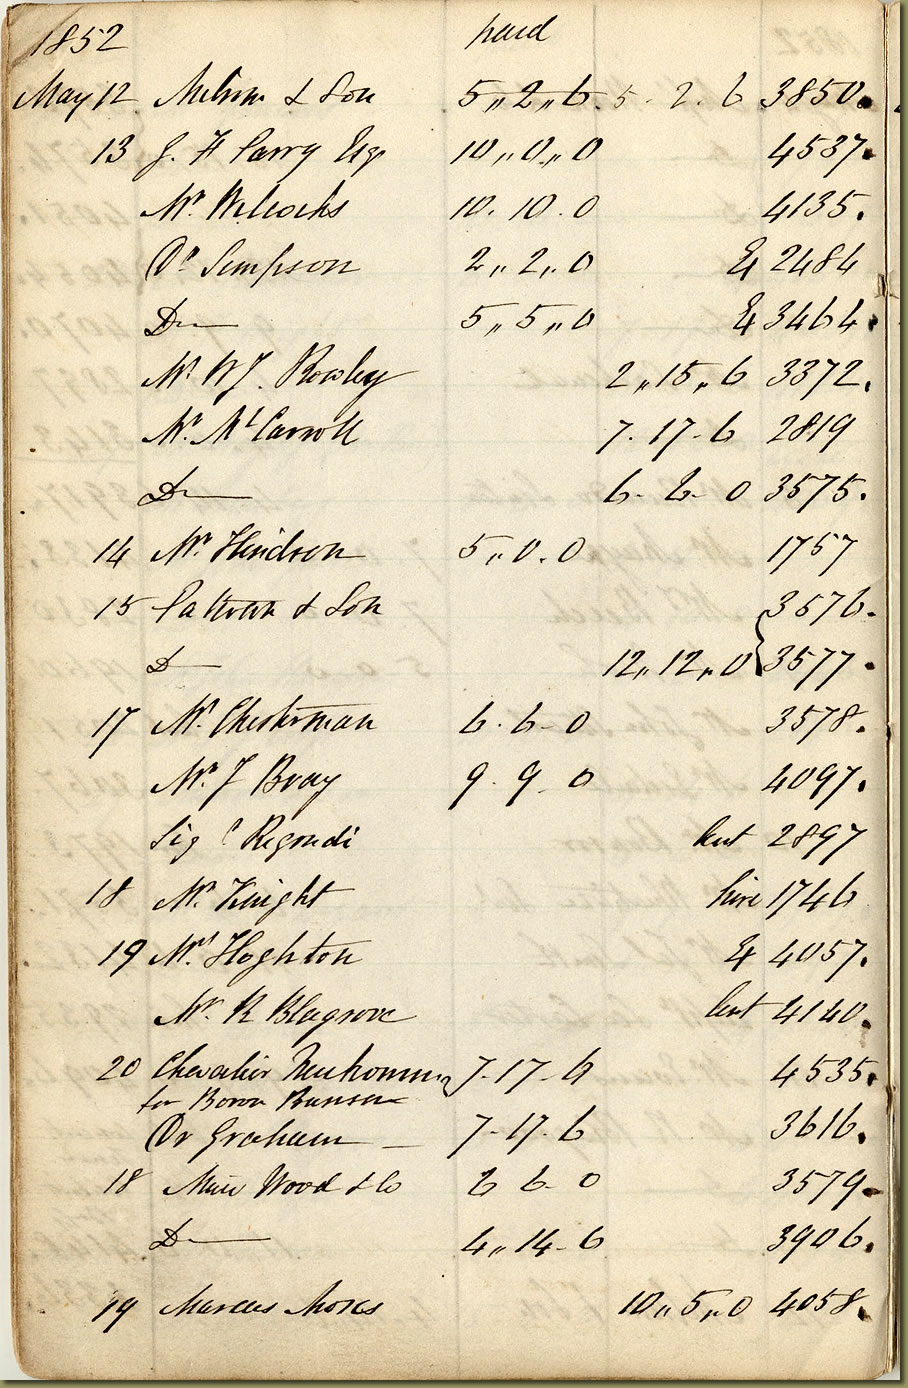 1852 paid
May 12 Milsom & Son 5,,2,,6. 5. 2. 6 3850.
13 J. H Parry Esq 10,,0,,0 4537.
Mr. Wilcocks 10. 10. 0 4135.
Dr Simpson 2,,2,,0 E 2484
Do 5,,5,,0 E 3464.
Mr. W J. Rowley 2,,15,,6 3372.
Mr. McCarroll 7. 17. 6 2819
Do 6. 6. 0 3575.
14 Mr. Hindson 5,,0.0 1757
15 & Son 3576.
Do 12,,12,,0 3577.
17 Mr. Chesterman 6. 6. 0 3578.
Mr. J Bray 9. 9. 0 4097.
Sigr Regondi lent 2897
18 Mr. Knight hire 1746
19 Mrs. Hoghton E 4057.
Mr. R Blagrove lent 4140.
20 Chevalier Neukomm 7-17-6 4535.
for Baron Bunsen
Dr Graham 7-17-6 3616.
18 Muir Wood & Co 6 6. 0 3579.
Do 4,,14-6 3906.
19 Marcus Moses 10,,5,,0 4058.